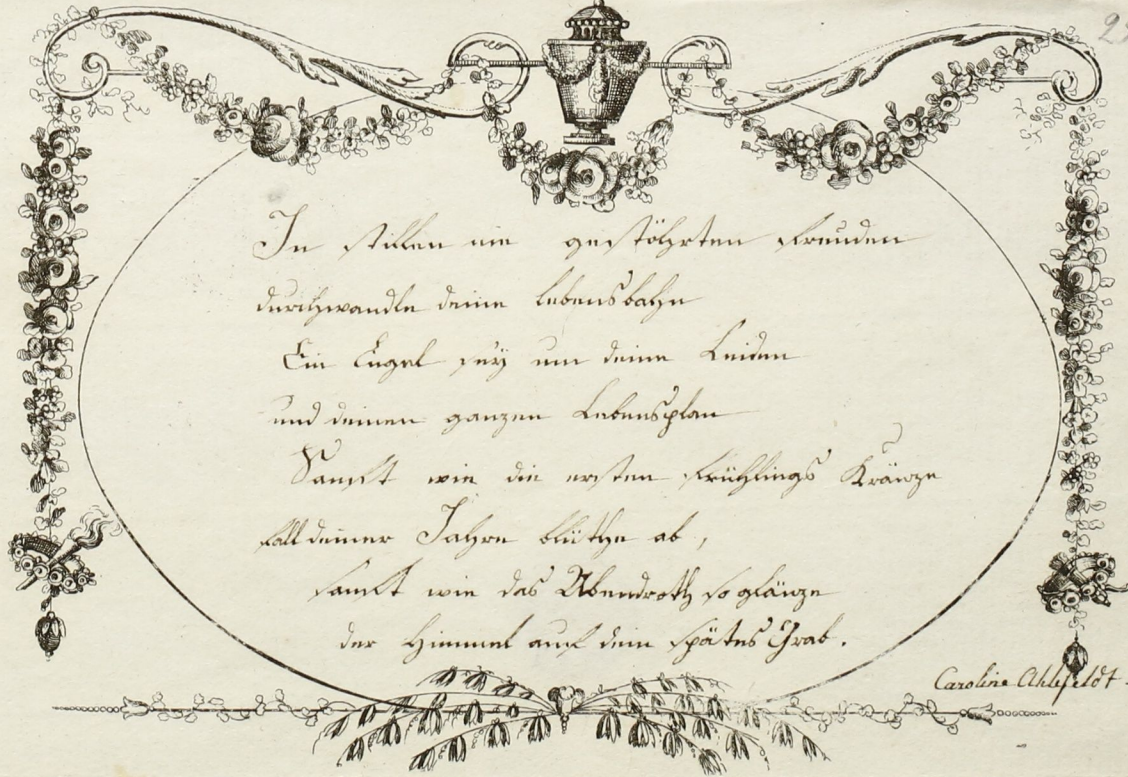 In stillen nie gestöhrten freuden
durchwandle deine lebensbahn
Ein Engel sey um deine Leiden
und deinen ganzen Lebensplan
Sanft wie die ersten frühlings Kränze
fall deiner Jahre blüthe ab,
sanft wie das Abendroth so glänze
der Himmel auf dein spätes Grab.
Caroline Ahlefeldt